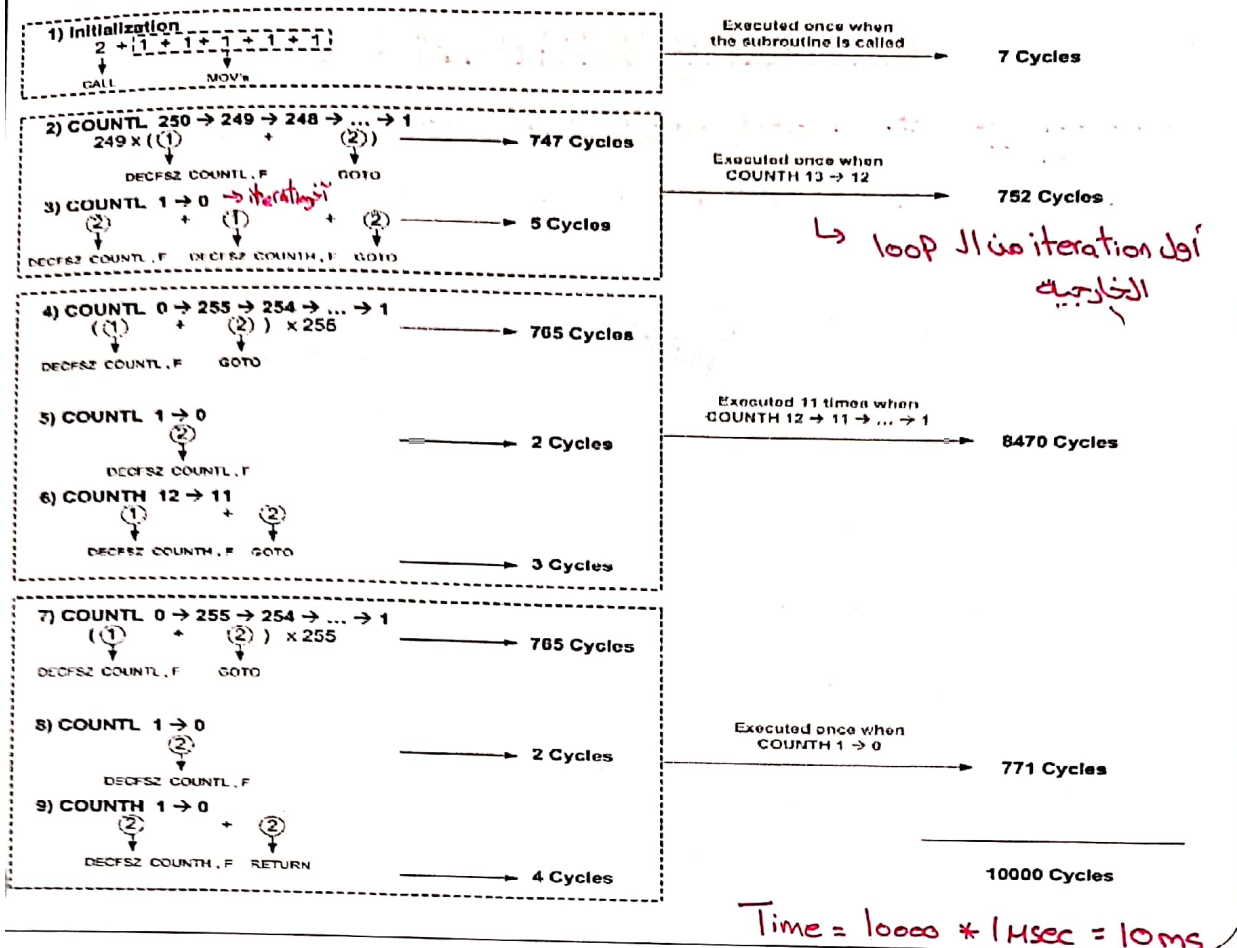 1) Initialization
2 + 1 + 1 + 1 + 1 + 1
CALL MOV's
Executed once when
the subroutine is called
7 Cycles
2) COUNTL 250 → 249 → 248 → ... → 1
249 x ((1) + (2))
747 Cycles
DECFSZ COUNTL, F GOTO
3) COUNTL 1 → 0 → iteration آخر
(2) + (1) + (2)
5 Cycles
DECFSZ COUNTL, F DECFSZ COUNTH, F GOTO
Executed once when
COUNTH 13 → 12
752 Cycles
↳ أول iteration من الـ loop
الخارجية
4) COUNTL 0 → 255 → 254 → ... → 1
((1) + (2)) x 255
765 Cycles
DECFSZ COUNTL, F GOTO
5) COUNTL 1 → 0
(2)
2 Cycles
DECFSZ COUNTL, F
6) COUNTH 12 → 11
(1) + (2)
DECFSZ COUNTH, F GOTO
3 Cycles
Executed 11 times when
COUNTH 12 → 11 → ... → 1
8470 Cycles
7) COUNTL 0 → 255 → 254 → ... → 1
((1) + (2)) x 255
765 Cycles
DECFSZ COUNTL, F GOTO
8) COUNTL 1 → 0
(2)
2 Cycles
DECFSZ COUNTL, F
9) COUNTH 1 → 0
(2) + (2)
DECFSZ COUNTH, F RETURN
4 Cycles
Executed once when
COUNTH 1 → 0
771 Cycles
10000 Cycles
Time = 10000 * 1 Msec = 10ms